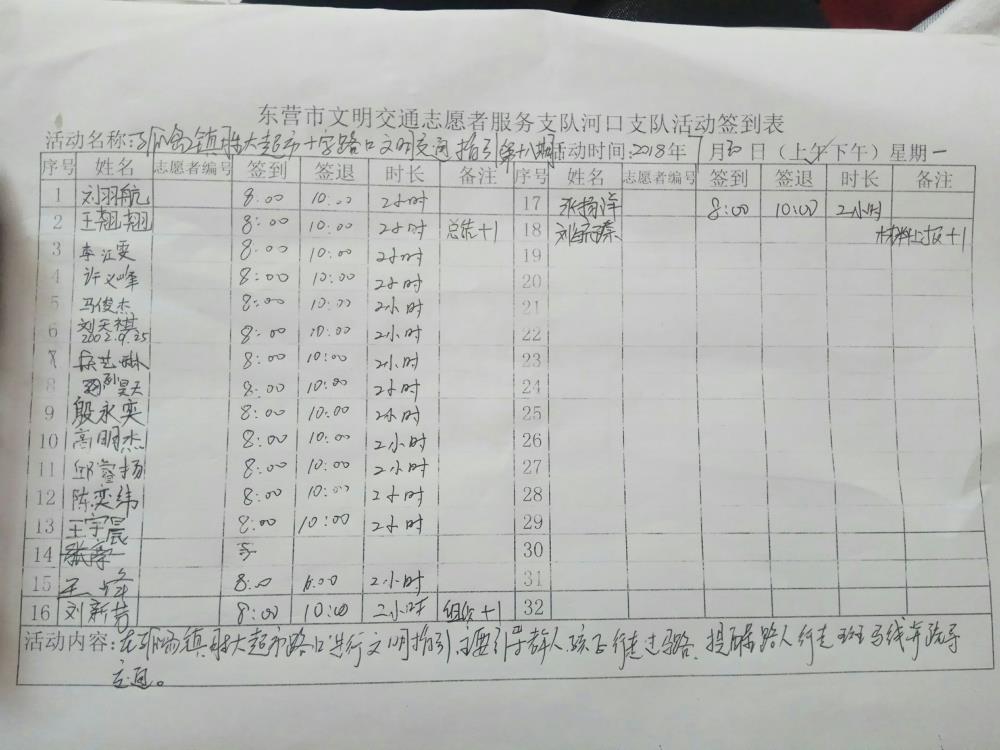 东营市文明交通志愿者服务支队河口支队活动签到表
活动名称: 镇 大超市十字路口文明交通指引第十八期 活动时间:2018年7月30日(上午/下午)星期一
序号 姓名 志愿者编号 签到 签退 时长 备注 序号 姓名 志愿者编号 签到 签退 时长 备注
1 刘羽航 8:00 10:00 2小时 17 张扬洋 8:00 10:00 2小时
2 王翘翘 8:00 10:00 2小时 总结+1 18 材料上报+1
3 李江雯 8:00 10:00 2小时 19
4 许义峰 8:00 10:00 2小时 20
5 马俊杰 8:00 10:00 2小时 21
6 刘天祺 2002.9.25 8:00 10:00 2小时 22
7 8:00 10:00 2小时 23
8 昊天 8:00 10:00 2小时 24
9 殷永奕 8:00 10:00 2小时 25
10 高明杰 8:00 10:00 2小时 26
11 邱睿扬 8:00 10:00 2小时 27
12 陈奕纬 8:00 10:00 2小时 28
13 王宇晨 8:00 10:00 2小时 29
14 30
15 8:00 2小时 31
16 刘新 8:00 10:00 二小时 组织+1 32
活动内容:在 镇 大超市路口进行文明指引,主要引导群人 行走过马路,提醒路人行走斑马线并疏导
交通。